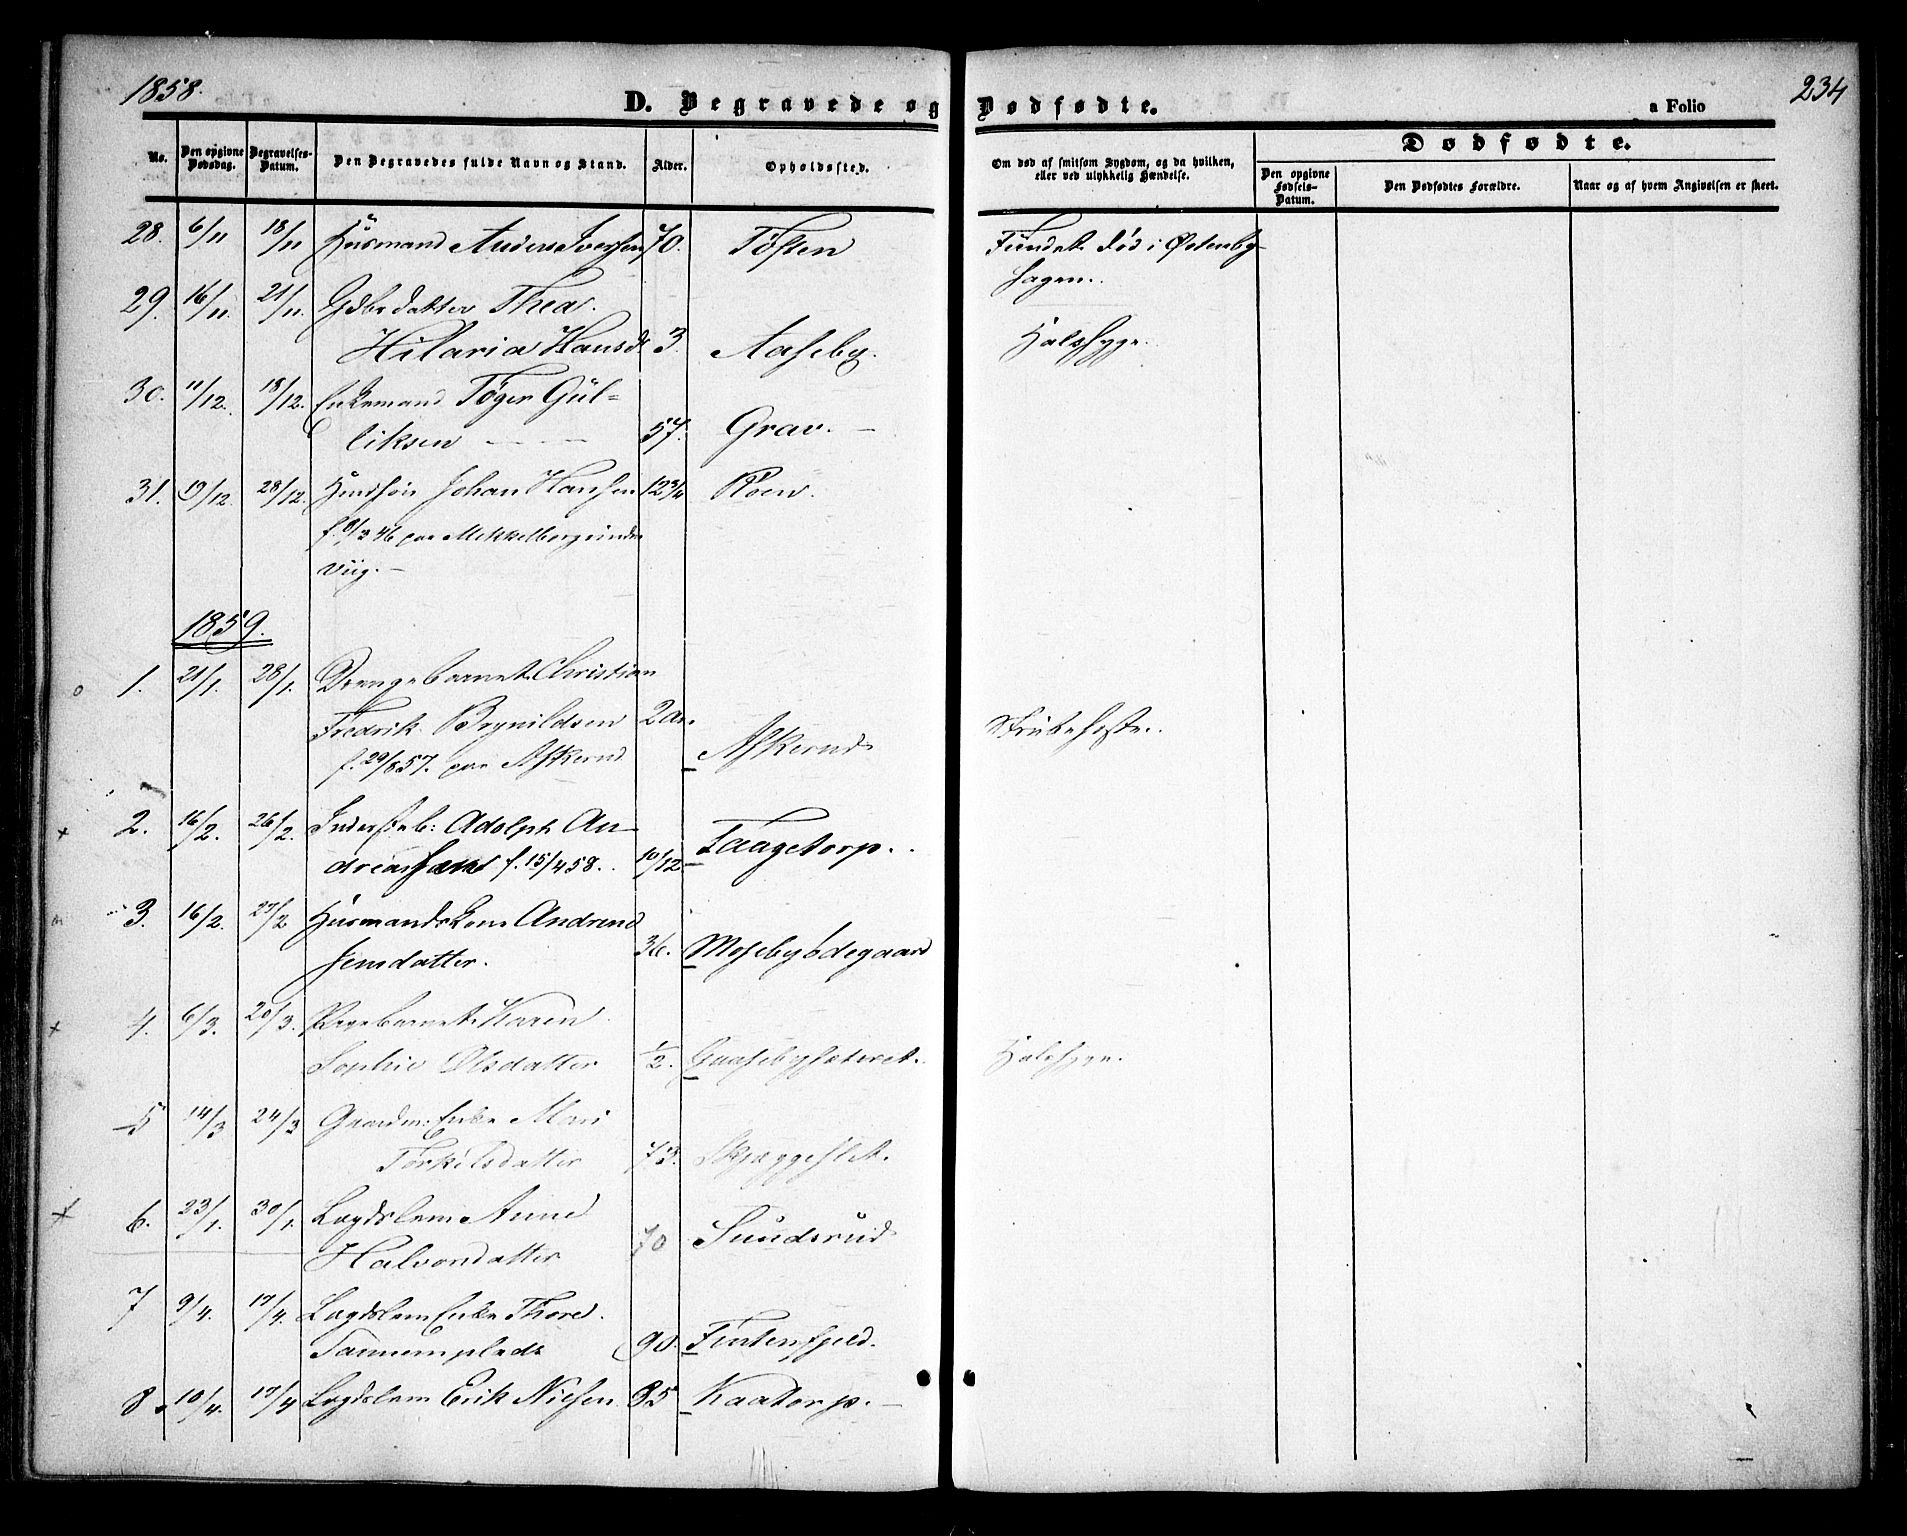 1858.
D. Begravede og Dødfødte.
a Folio
234
No.
Den opgivne Dødsdag.
Begravelses-Datum.
Den Begravedes fulde Navn og Stand.
Alder.
Opholdssted.
Om død af smitsom Sygdom, og da hvilken,
eller ved ulykkelig Hændelse.
Dødfødte.
Den opgivne Fødsels-Datum.
Den Dødfødtes Forældre.
Naar og af hvem Angivelsen er skeet.
28. 6/11 18/11 Huusmand Anders Iversen 70. Toften Fundet død i Østenby-
hagen.
29. 16/11. 21/11. Gdbr datter Thea
Hilaria Hansd 3. Aaseby. Halssyge.
30. 11/12. 18/12. Enkemand Tøger Gul-
liksen 57. Grav.
31. 19/12. 28/12. Johan Hansen 12 3/4 Roen.
46 paa Mekkelborg under
Viig.
1859.
1. 21/1. 28/1. Drengebarnet Christian
Fredrik Brynildsen 2 Strubehoste.
f. 29/8 57. paa Askerud Askerud
2. 16/2. 26/2. Adolph An-
dreassen f. 15/4 58. 10/12. Taagetorp.
3. 16/2. 27/2 Huusmandskone Andrine
Jensdatter. 36. Moseby ødegaard
4. 6/3. 20/3. Pigebarnet Karen
Sophie Olsdatter 1/2. Gaasebysæteret. Halssyge.
5 14/3 24/3 Gaardm: Enke Mari
Torkilsdatter 73. Skjæggeslet.
6. 23/1. 30/1. Lægdslem Anne
Halvorsdatter 70 Sundsrud
7 9/4. 17/4. Lægdslem Enke Thore
90. Fintenfjeld.
8. 10/4. 17/4 Lægdslem Erik Nielsen 85 Kaatorp.